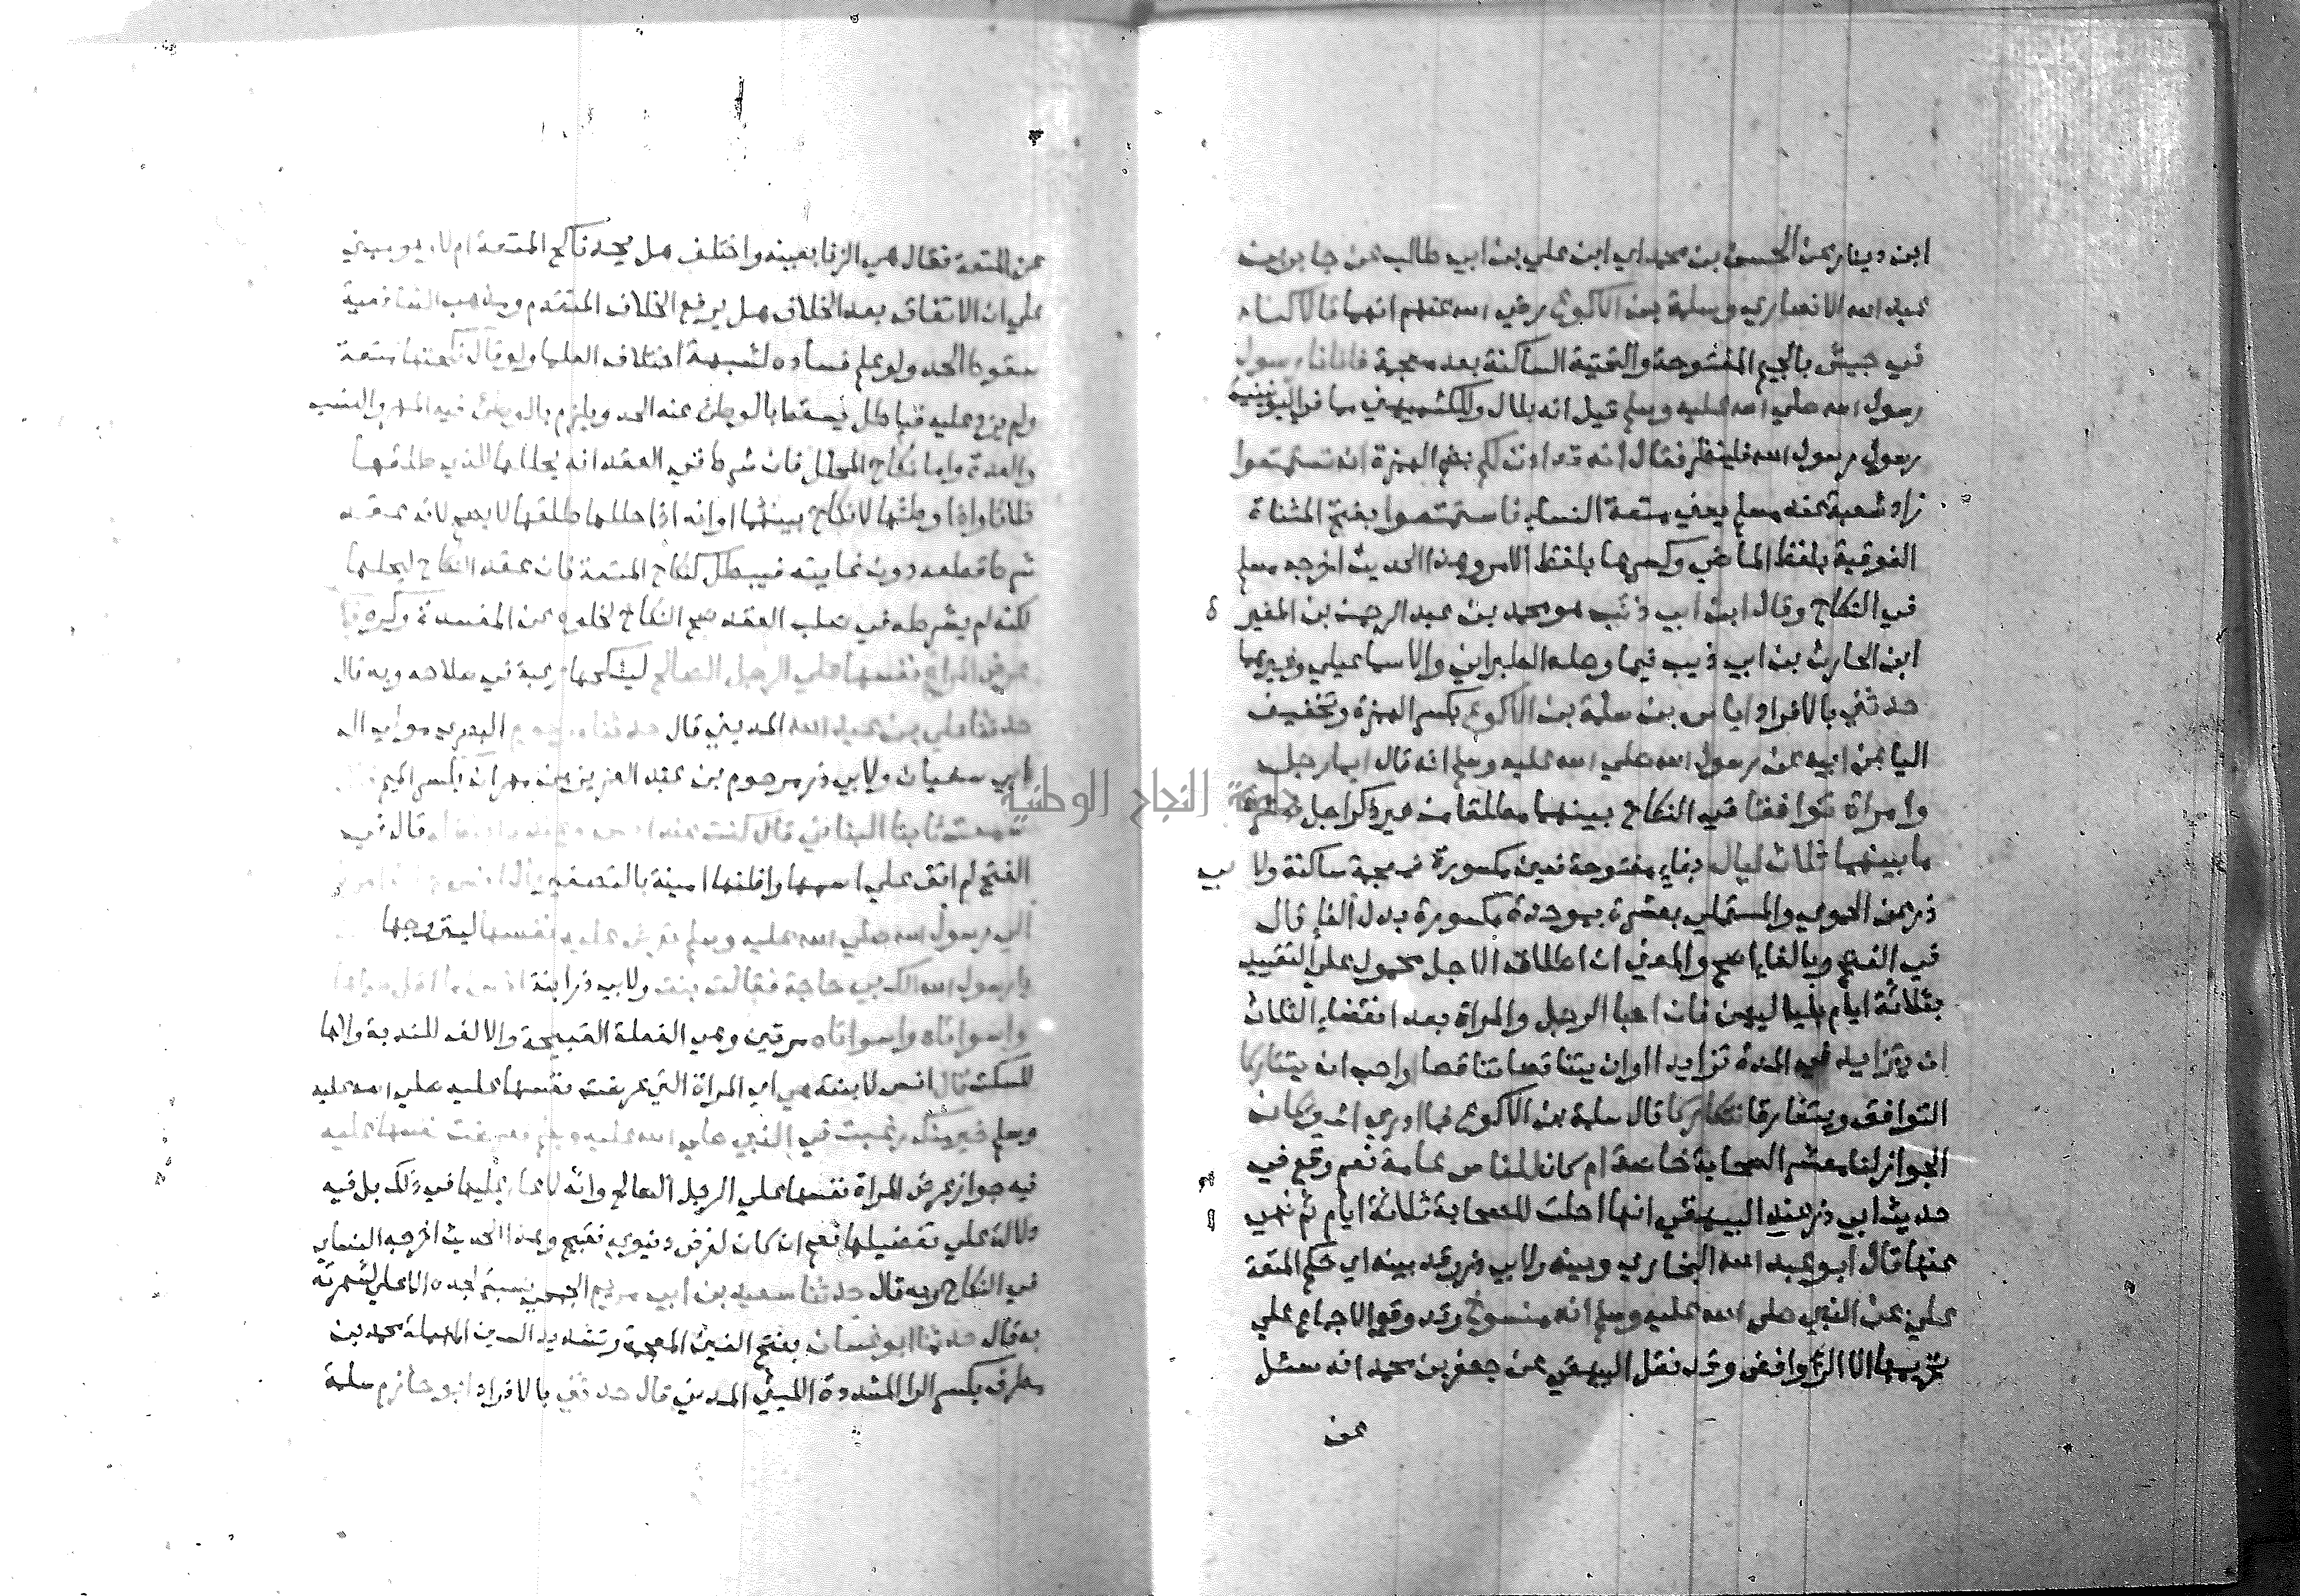 ابن دينار عن الحسن بن محمد اي ابن علي بن ابي طالب عن جابر بن
عبد الله الانصاري وسلمة بن الاكوع رضي الله عنهم انهما قالا كنا
في جيش بالجيم المفتوحة والتحتية الساكنة بعدها معجمة فاتانا رسول
رسول الله صلي الله عليه وسلم قيل انه بلال وللكشميهني مما في اليونينية
رسول رسول الله فلينظر فقال انه قد اذن لكم بضم الهمزة ان تستمتعوا
زاد شعبة عند مسلم يعني متعة النساء فاستمتعوا بفتح المثناة
الفوقية بلفظ الماضي وكسرها بلفظ الامر وهذا الحديث اخرجه مسلم
في النكاح وقال ابن ابي ذئب هو محمد بن عبد الرحمن بن المغير
ابن الحارث بن ابي ذيب فيما وصله الطبراني والاسماعيلي وغيرهما
حدثني بالافراد اياس بن سلمة بن الاكوع بكسر الهمزة وتخفيف
اليا عن ابيه عن رسول الله صلي الله عليه وسلم انه قال ايما رجل
وامراة توافقا في النكاح بينهما مطلقا من غير ذكر اجل فعشرة
ما بينهما ثلاث ليال بفاء مفتوحة فعين مكسورة فمعجمة ساكنة ولابي
ذر عن الحموي والمستملي بعشرة بموحدة مكسورة بدل الفاء قال
في الفتح وبالفاء اصح والمعني ان اطلاق الاجل محمول علي التقييد
بثلاثة ايام بلياليهن فان احبا الرجل والمراة بعد انقضاء الثلاث
ان يتزايدا في المدة تزايدا او ان يتناقصا تناقصا او احب ان يتتاركا
التوافق ويتفارقا تتاركا قال سلمة بن الاكوع فما ادري اشي كان
الجواز لنا معشر الصحابة خاصة ام كان للناس عامة نعم وقع في
حديث ابي ذر عند البيهقي انها احلت للصحابة ثلاثة ايام ثم نهي
عنها قال ابو عبد الله البخاري وبينه ولابي ذر وقد بينه اي حكم المتعة
علي عن النبي صلي الله عليه وسلم انه منسوخ وقد وقع الاجماع علي
تحريمها الا الروافض وقد نقل البيهقي عن جعفر بن محمد انه سئل
عن
عن المتعة فقال هي الزنا بعينه واختلف هل يحد ناكح المتعة ام لا وهو مبني
علي ان الاتفاق بعد الخلاف هل يرفع الخلاف المتقدم ومذهب الشافعية
سقوط الحد ولو علم فساده لشبهة اختلاف العلما ولو قال نكحتها متعة
ولم يزد عليه فباطل يسقط بالوطئ عنه الحد ويلزم بالوطئ فيه المهر والنسب
والعدة واما نكاح المحلل فان شرط في العقد انه يحللها للذي طلقها
ثلاثا واذا وطئها لا نكاح بينهما او انه اذا حللها طلقها لا يصح لانه عقد
شرط قطعه دون غايته فيبطل كنكاح المتعة فان عقد النكاح ليحلها
لكنه لم يشرطه في صلب العقد صح النكاح لخلوه عن المفسدة وكره
عرض المراة نفسها علي الرجل الصالح لينكحها رغبة في صلاحه وبه قال
حدثنا علي بن عبد الله المديني قال حدثنا مرحوم البصري مولي ال
ابي سفيان ولابي ذر مرحوم بن عبد العزيز بن مهران بكسر الميم
سمعت ثابتا البناني قال كنت عند انس قال في
الفتح لم اقف علي اسمها واظنها امينة بالتصغير
الي رسول الله صلي الله عليه وسلم تعرض عليه نفسها ليتزوجها
يا رسول الله الك بي حاجة فقالت بنت ولابي ذر ابنة انس ما اقل حياها
واسواتاه واسواتاه مرتين وهي الفعلة القبيحة والالف للندبة والها
للسكت قال انس لابنته هي اي المراة التي عرضت نفسها عليه صلي الله عليه
وسلم خير منك رغبت في النبي صلي الله عليه وسلم فعرضت نفسها عليه
فيه جواز عرض المراة نفسها علي الرجل الصالح وانه لا عار عليها في ذلك بل فيه
دلالة علي تفضيلها نعم ان كان لغرض دنيوي فقبيح وهذا الحديث اخرجه النساي
في النكاح وبه قال حدثنا سعيد بن ابي مريم الجمحي نسبة لجده الاعلي لشهرته
به قال حدثنا ابو غسان بفتح الغين المعجمة وتشديد السين المهملة محمد بن
مطرف بكسر الرا المشددة الليثي المدني قال حدثني بالافراد ابو حازم سلمة
جامعة النجاح الوطنية